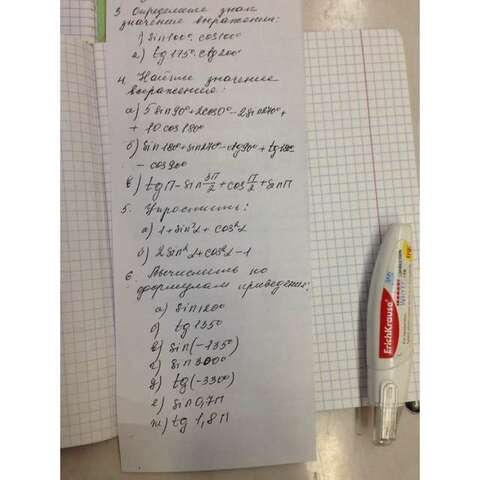 3. Определите знак
значение выражения:
1) sin100°·cos100°
2) tg175°·ctg200°
4. Найти значение
выражение:
а) 5sin90°+2cos0°-2sin270°+
+ 10cos180°
б) sin180°+sin270°-ctg90°+tg180°
- cos90°
в) tgπ-sin 3π/2 + cos π/2 + sinπ
5. Упростить:
а) 1+sin²α+cos²α
б) 2sin²α+cos²α-1
6. Вычислить по
формулам приведения:
а) sin120°
б) tg135°
в) sin(-135°)
г) sin300°
д) tg(-330°)
е) sin0,7π
ж) tg1,8π
ErichKrause